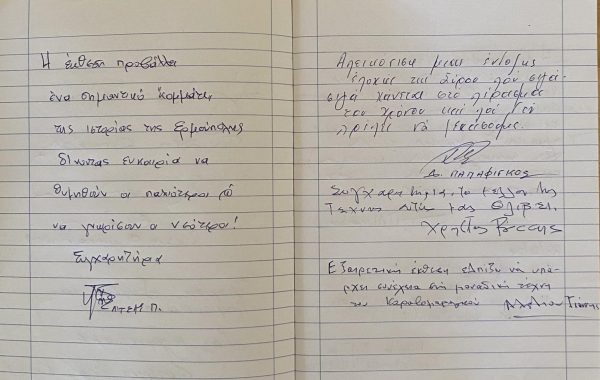 Η έκθεση προβάλλει
ένα σημαντικό κομμάτι
της ιστορίας της Ερμούπολης
δίνοντας ευκαιρία να
θυμηθούν οι παλιότεροι
να γνωρίσουν οι νεότεροι!
Συγχαρητήρια
Π.
Απεικόνιση μιας ένδοξης
εποχής της Σύρου που σιγά-
σιγά χάνεται στο πέρασμα
του χρόνου και που δεν
πρέπει να ξεχάσουμε.
Δ. ΠΑΠΑΦΙΓΚΟΣ
Συγχαρητήρια, το μέλλον της
Τέχνης αυτή μας θλίβει.
Χρήστος
Εξαιρετική έκθεση ελπίζω να υπά-
ρχει συνέχεια στη μοναδική τέχνη
του Καραβομαραγκού